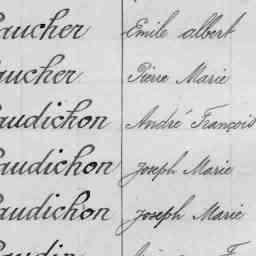 aucher Emile albert
aucher Pierre Marie
audichon André François
audichon Joseph Marie
audichon Joseph Marie